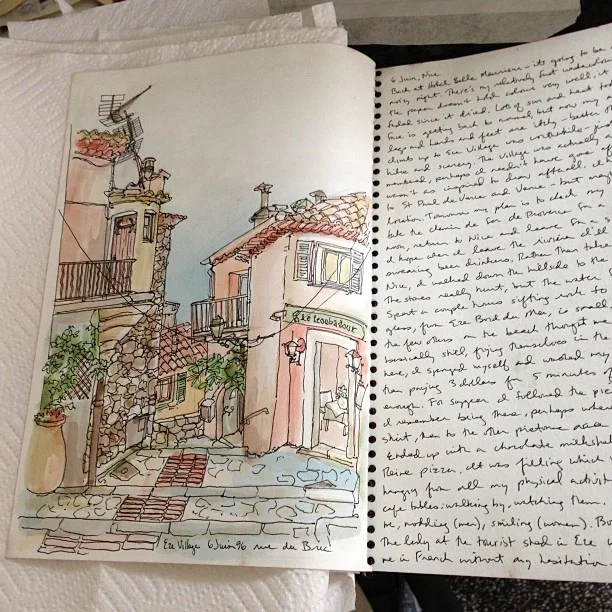 Le troubadour
Eze Village 6 Juin 96 rue du Brec
6 Juin, Nice
Back at Hotel Belle Meunière – its going to be
noisy night. There's my relatively fast watercolour
the paper doesn't hold colour very well, it
faded since it dried. Lots of sun and heat tod
face is getting back to normal, but now my
legs and hands and feet are itchy – better
climb up to Eze Village was worthwhile – just
hike and scenery. The village was actually
membered, perhaps I needn't have gone
wasn't as inspired to draw afterall. I
to St Paul de Vence and Vence – but may
location. Tomorrow my plan is to check my
take the chemin de fer de Provence for a
noon, return to Nice and leave for a
I hope when I leave the rivièra I'll
swearing beer drinkers. Rather than take
Nice, I walked down the hillside to the
The stones really hurt, but the water
Spent a couple hours sifting
glass, from Eze Bord du Mer, is small
the few others on the beach thought
basically shell, frying themselves in the
here, I sponged myself and washed my
than paying 3 dollars for 5 minutes of
enough. For supper I followed the
I remember being there, perhaps when
shirt, then to the other pietone area
Ended up with a chocolate milkshake
Reine pizza. It was filling which
hungry from all my physical activity
cafe tables: walking by, watching them
me, nodding (men), smiling (women). B
The lady at the tourist shed in Eze
me in French without any hesitation